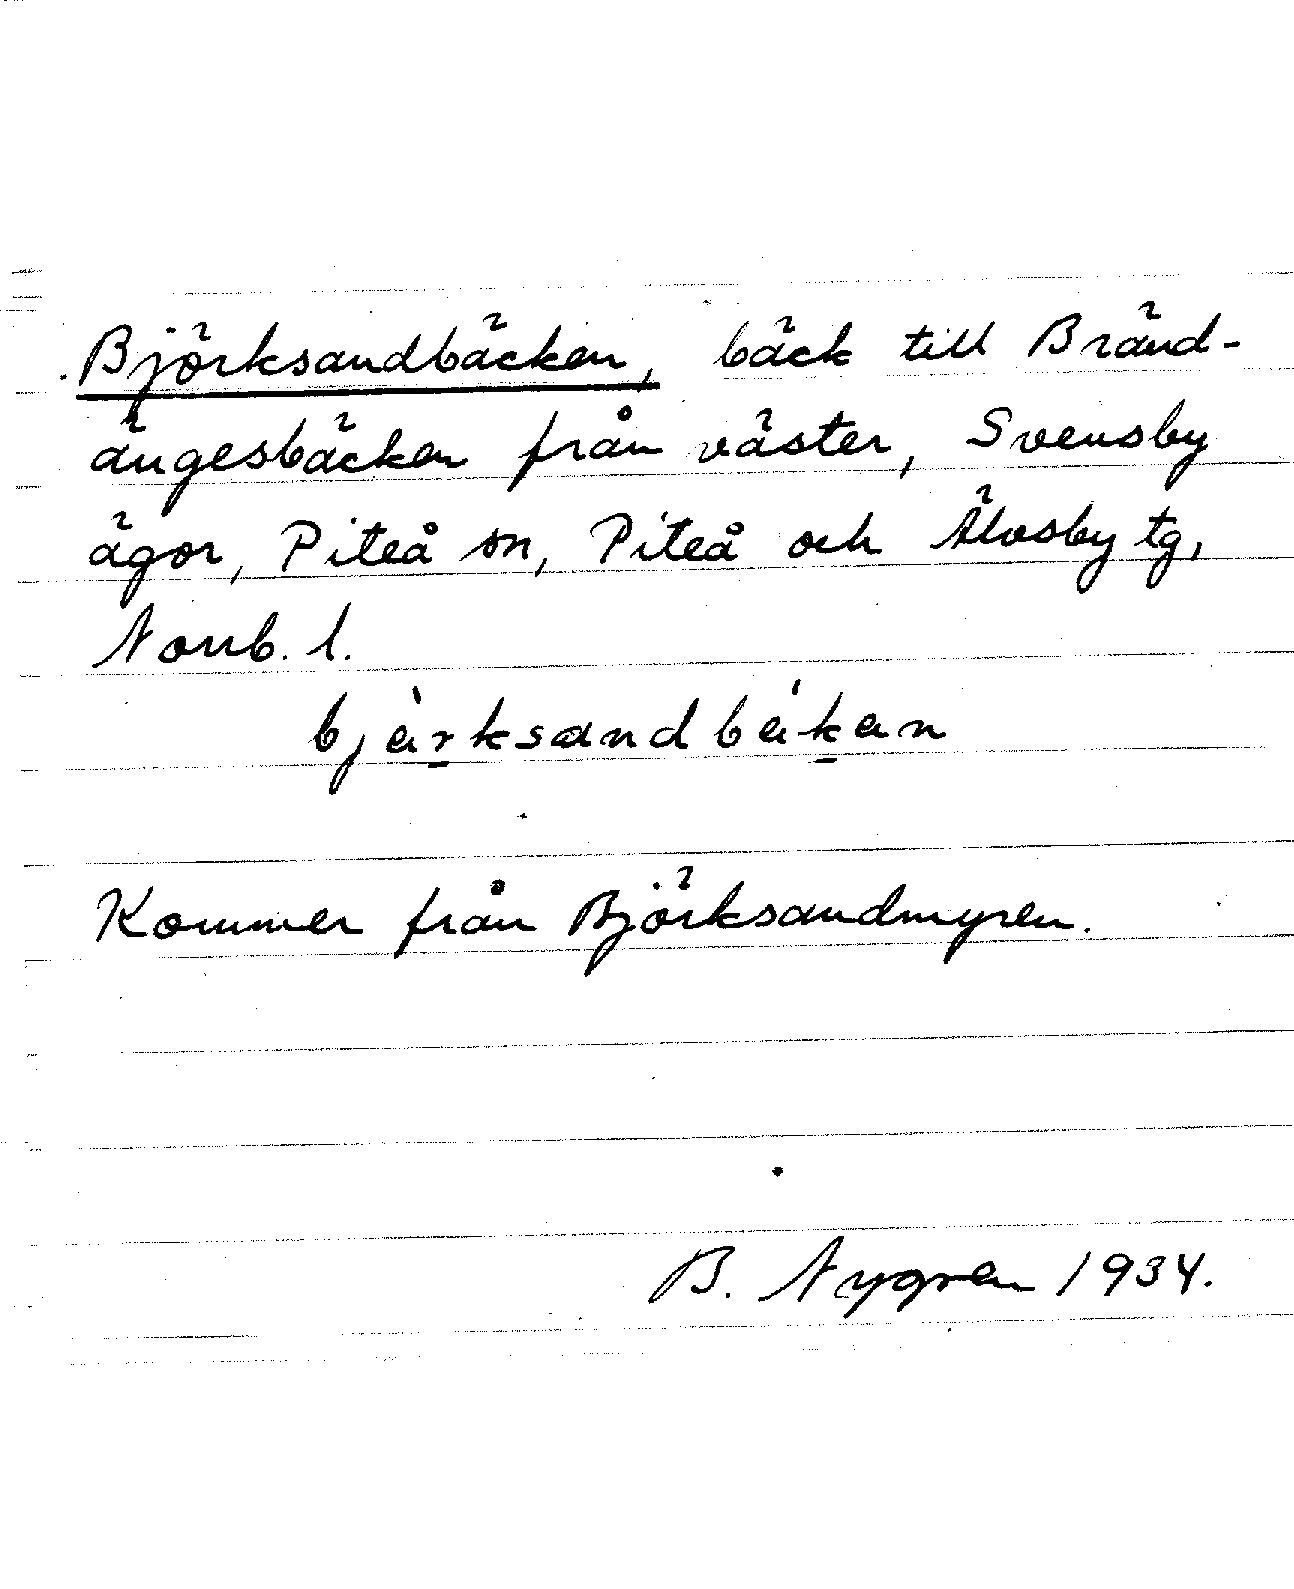 Björksandbäcken, bäck till Bränd-
ängesbäcken från väster, Svensby
ägor, Piteå sn, Piteå och Älvsby tg,
Norrb. l.
bjärksandbäkän
Kommer från Björksandmyren.
B. Nygren 1934.